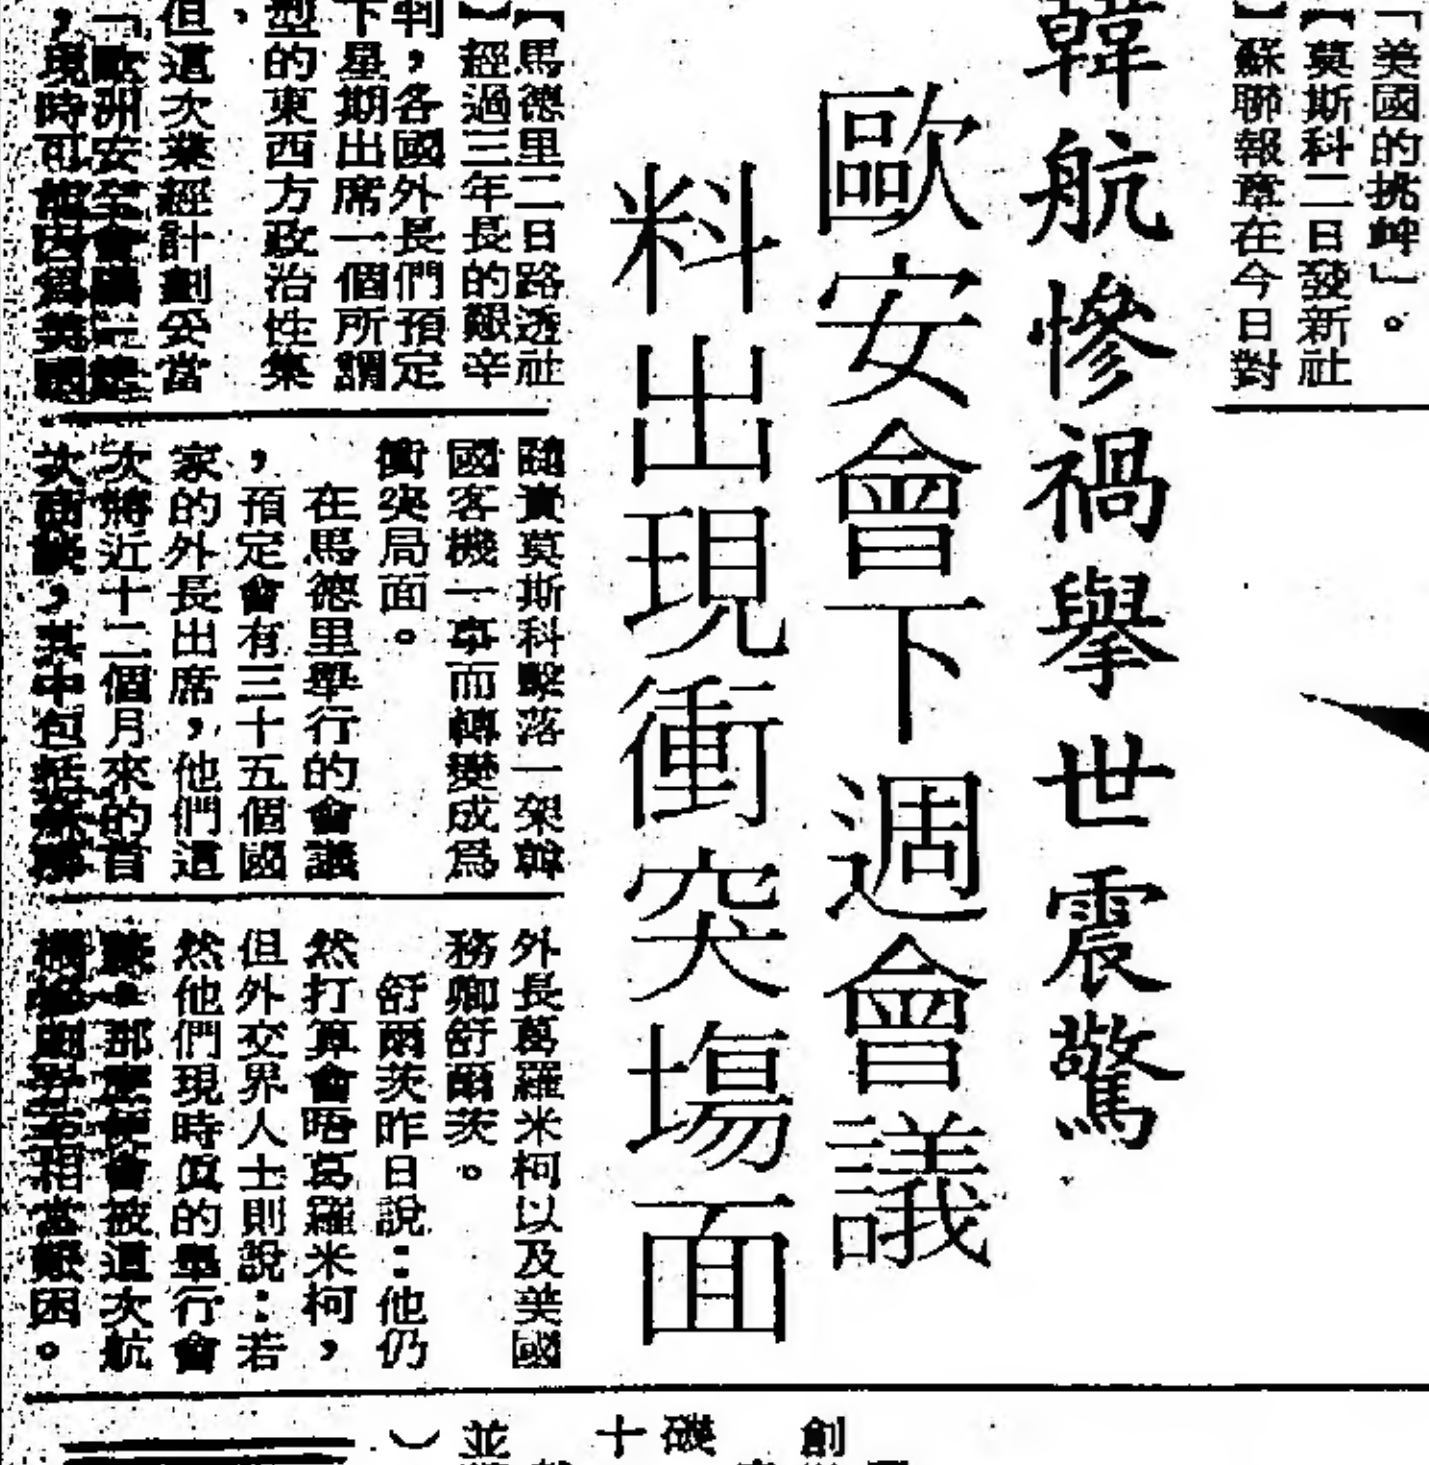 「美國的挑衅」。
【莫斯科二日發新社
】蘇聯報章在今日對
韓航慘禍擧世震驚
歐安會下週會議
料出現衝突塲面
【馬德里二日路透社
】經過三年長的艱辛
判，各國外長們預定
下星期出席一個所謂
型的東西方政治性集
、
但這次業經計劃妥當
「歐洲安全會
，現時可
隨責莫斯科擊落一架韓
國客機一事而轉變成爲
衝突局面。
在馬德里擧行的會議
，預定會有三十五個國
家的外長出席，他們這
次將近十二個月來的首
次，其中包括蘇聯
外長葛羅米柯以及美國
務卿舒爾茨。
舒爾茨昨日說：他仍
然打算會晤葛羅米柯，
但外交界人士則說：若
然他們現時眞的擧行會
，那麼便會被這次航
相當綴困。
創
磯
十
並
）